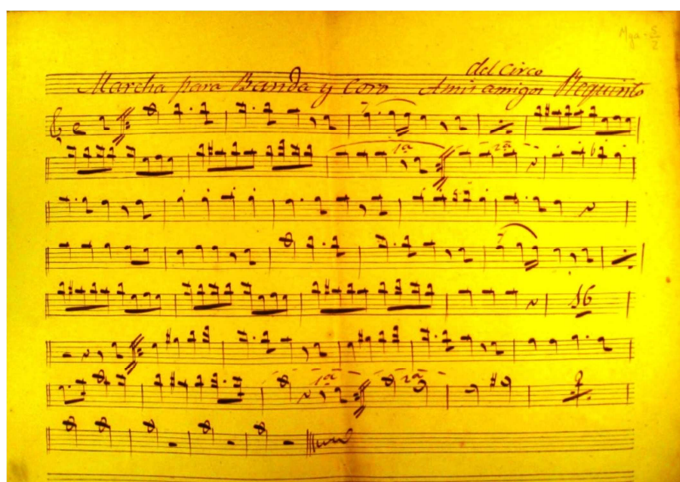 Mya - 5/2
del Circo
Marcha para Banda y Coro A mis amigos Requinto
1a 2a
16
1a 2a